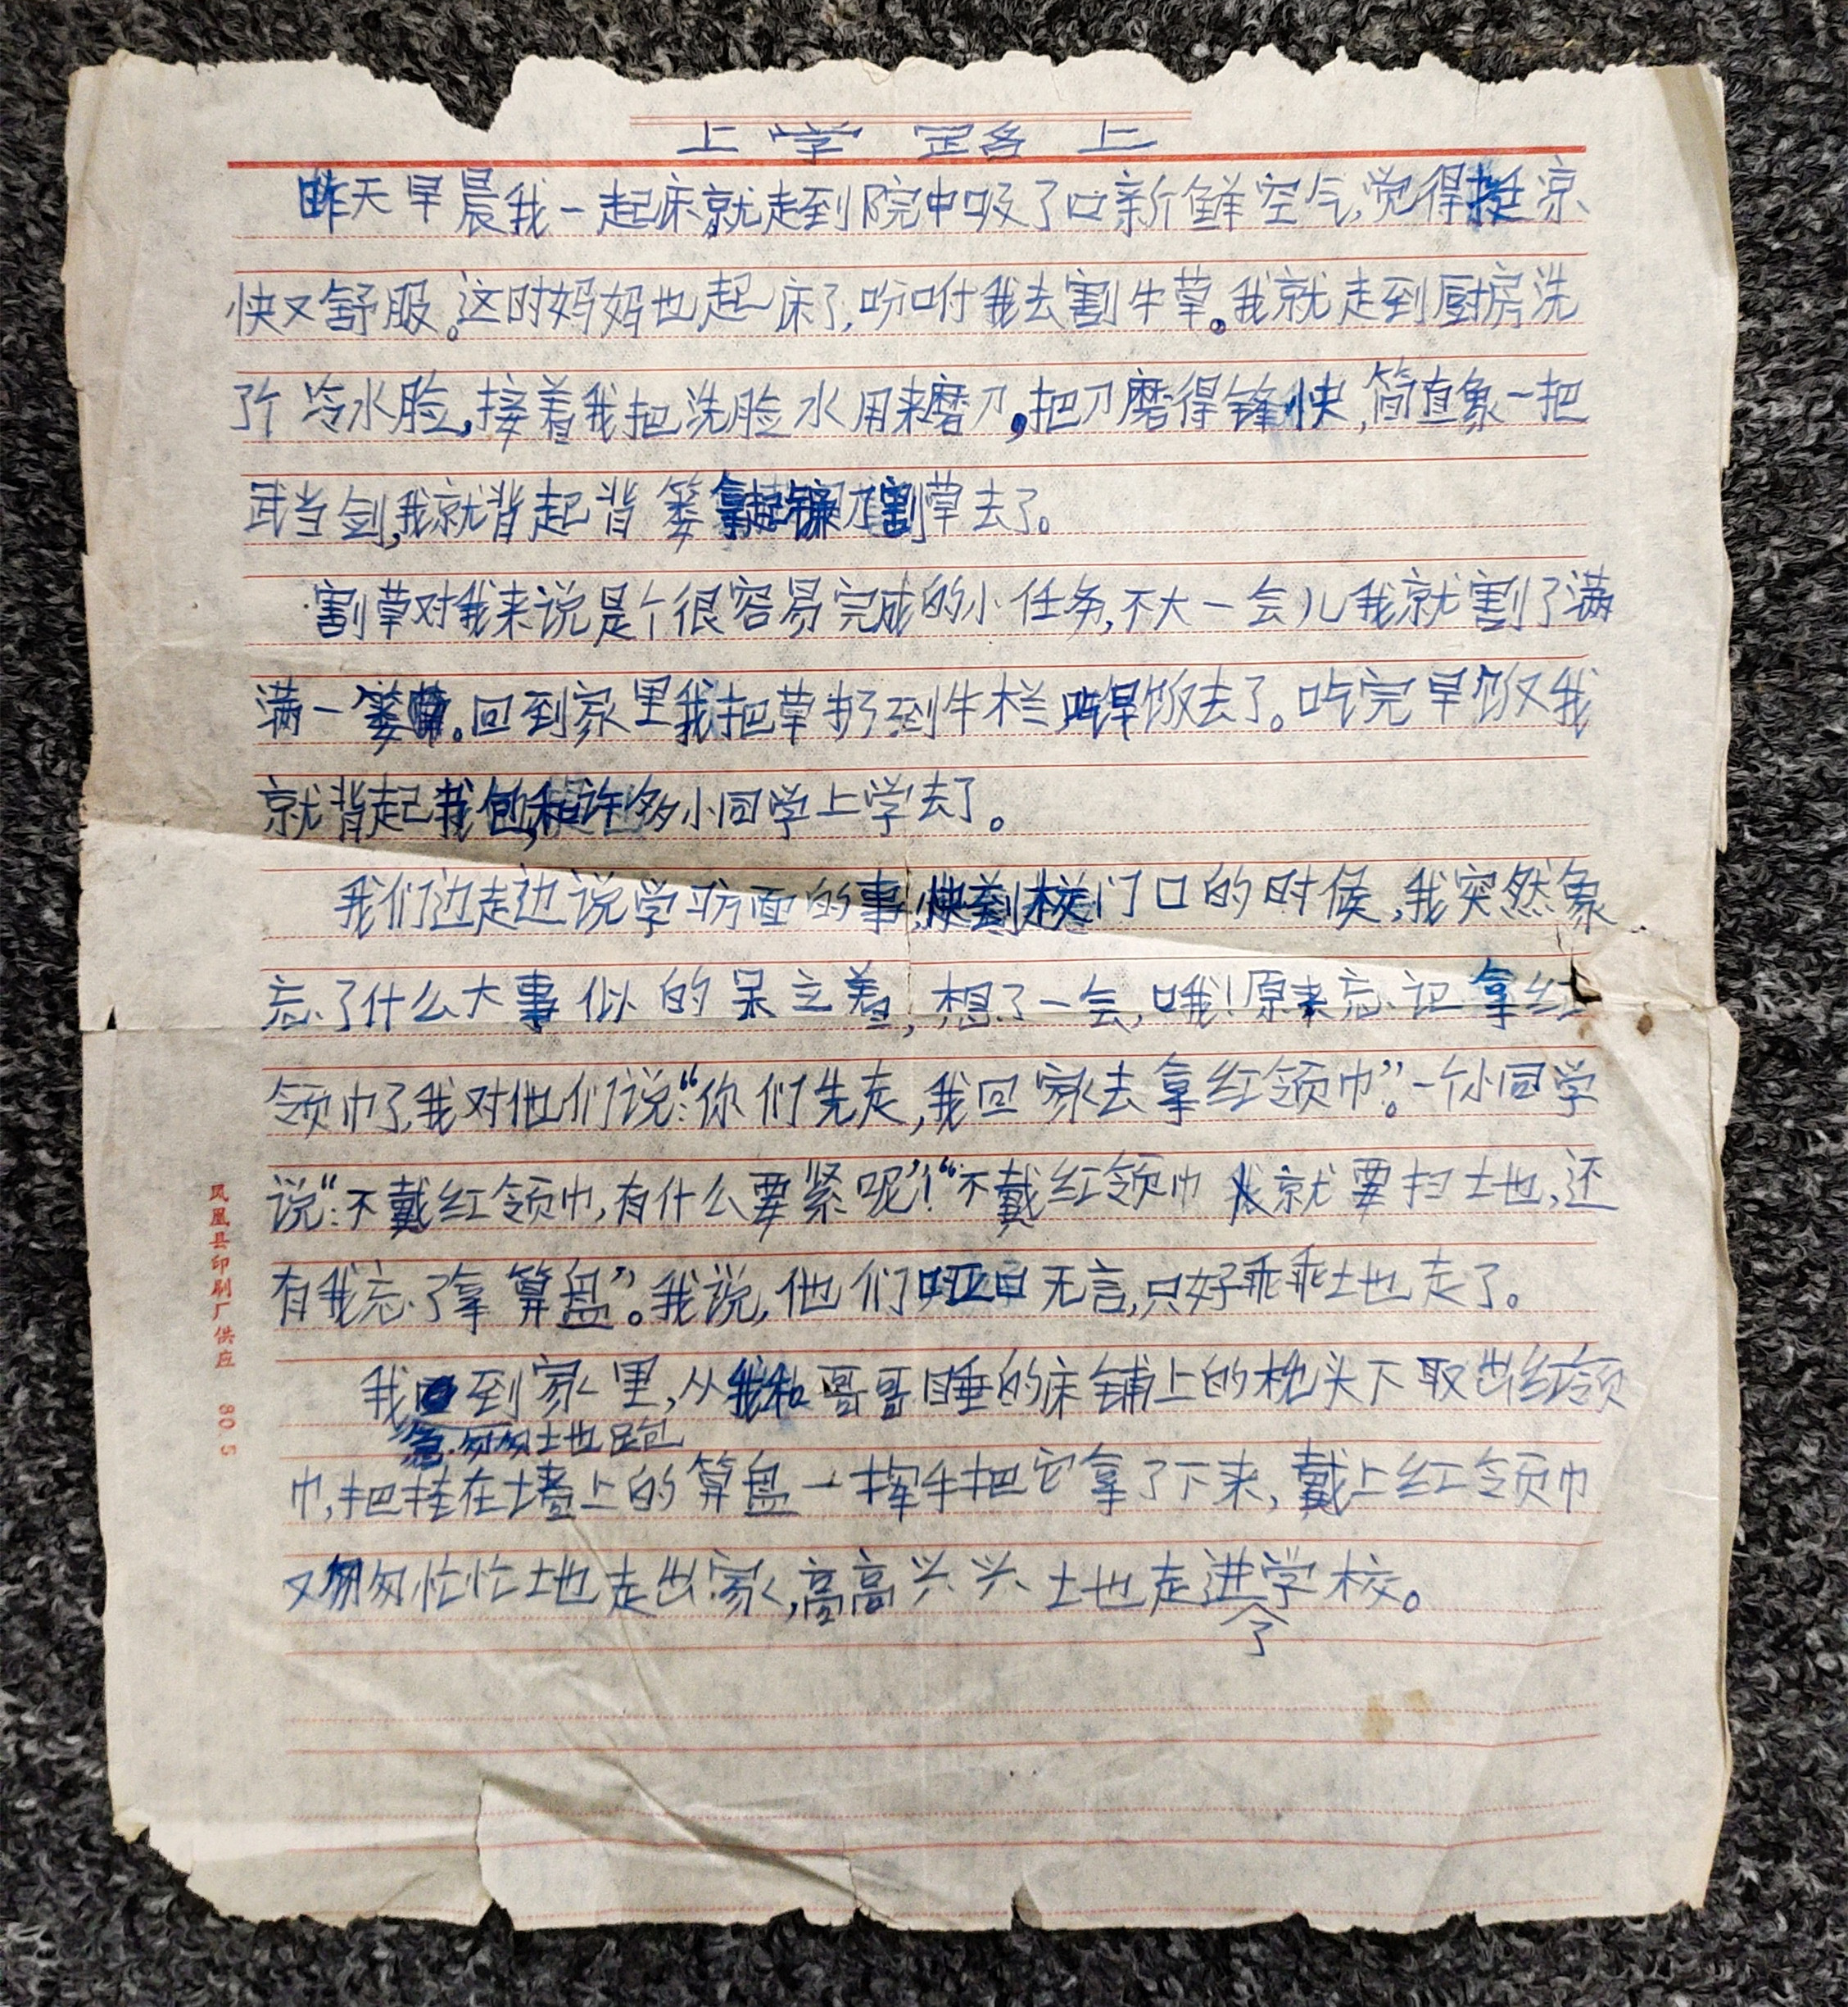 上学路上
昨天早晨我一起床,就走到院中吸了口新鲜空气,觉得挺凉
快又舒服。这时妈妈也起床了,吩咐我去割牛草。我就走到厨房洗
了个冷水脸,接着我把洗脸水用来磨刀,把刀磨得锋快,简直象一把
武当剑,我就背起背篓拿起镰刀割草去了。
割草对我来说是个很容易完成的小任务,不大一会儿我就割了满
满一篓草。回到家里我把草扔到牛栏吃早饭去了。吃完早饭我
就背起书包,和许多小同学上学去了。
我们边走边说学习方面的事,快到校门口的时候,我突然象
忘了什么大事似的呆立着,想了一会,哦!原来忘记拿红
领巾了,我对他们说:“你们先走,我回家去拿红领巾”。一个小同学
说:“不戴红领巾,有什么要紧呢”!“不戴红领巾 就要扫地,还
有我忘了拿算盘”。我说,他们哑口无言,只好乖乖地走了。
我回到家里,从我和哥哥睡的床铺上的枕头下取出红领
急匆匆地跑
巾,把挂在墙上的算盘一挥手把它拿了下来,戴上红领巾
又匆匆忙忙地走出家,高高兴兴地走进学校。
了
凤凰县印刷厂供应 80.5